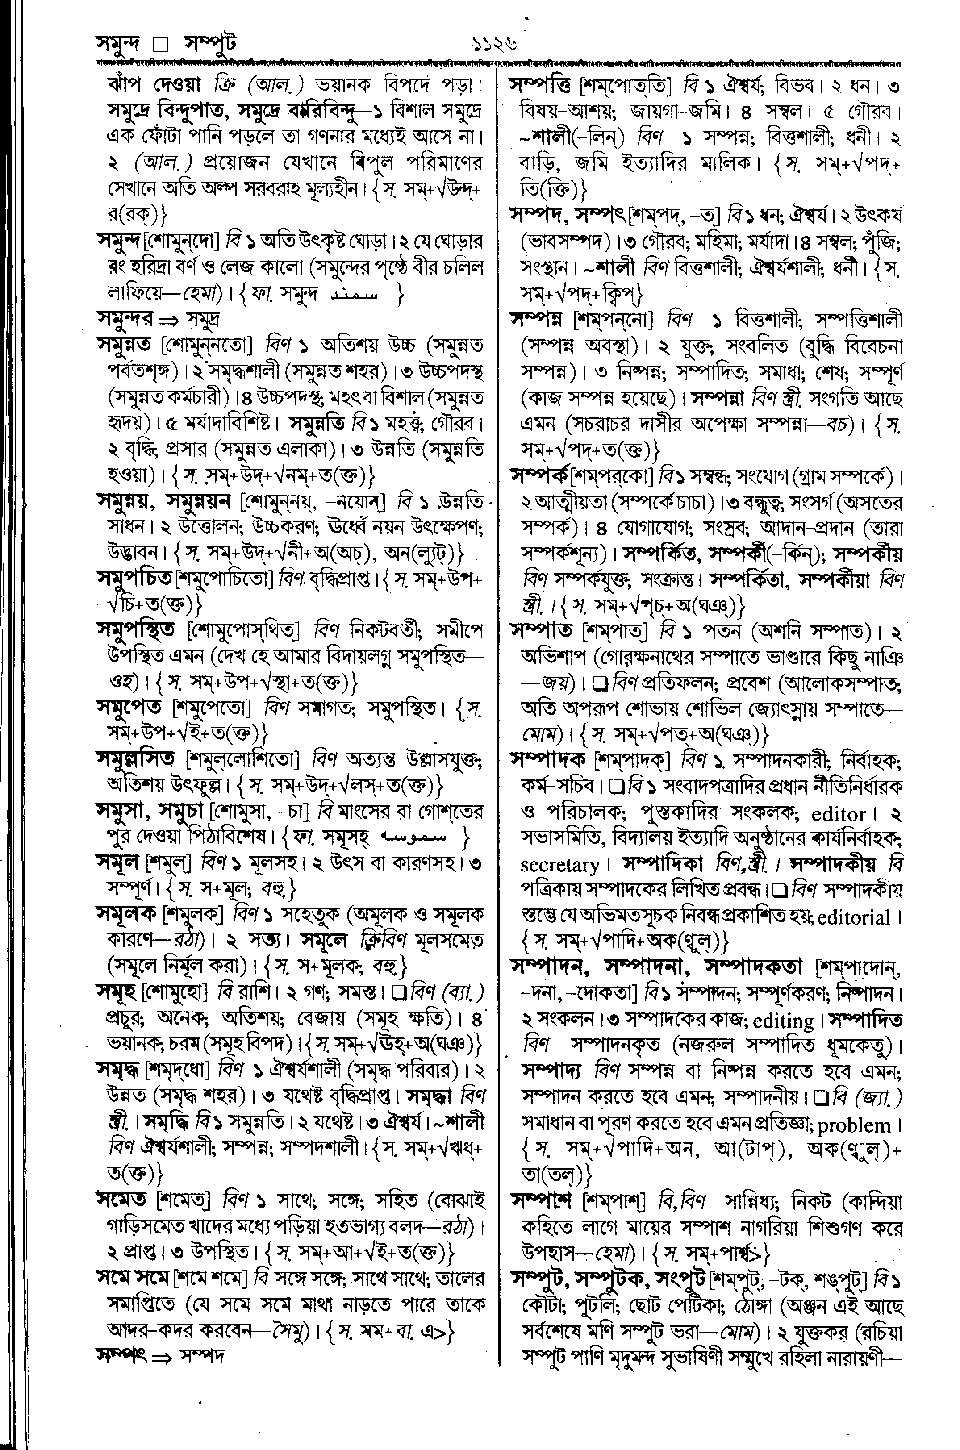 সমুন্দ □ সম্পুট
১১২৬
ঝাঁপ দেওয়া ক্রি (আল.) ভয়ানক বিপদে পড়া।
সমুদ্রে বিন্দুপাত, সমুদ্রে বারিবিন্দু—১ বিশাল সমুদ্রে
এক ফোঁটা পানি পড়লে তা গণনার মধ্যেই আসে না।
২ (আল.) প্রয়োজন যেখানে বিপুল পরিমাণের
সেখানে অতি অল্প সরবরাহ মূল্যহীন। {স. সম্+√উদ্+
র(রক্)}
সমুন্দ [শোমুন্‌দো] বি ১ অতি উৎকৃষ্ট ঘোড়া। ২ যে ঘোড়ার
রং হরিদ্রা বর্ণ ও লেজ কালো (সমুন্দের পৃষ্ঠে বীর চলিল
লাফিয়ে—হেমা)। {ফা. সমুন্দ سمند }
সমুন্দর ⇒ সমুদ্র
সমুন্নত [শোমুন্‌নতো] বিণ ১ অতিশয় উচ্চ (সমুন্নত
পর্বতশৃঙ্গ)। ২ সমৃদ্ধশালী (সমুন্নত শহর)। ৩ উচ্চপদস্থ
(সমুন্নত কর্মচারী)। ৪ উচ্চপদস্থ; মহৎ বা বিশাল (সমুন্নত
হৃদয়)। ৫ মর্যাদাবিশিষ্ট। সমুন্নতি বি ১ মহত্ত্ব; গৌরব।
২ বৃদ্ধি; প্রসার (সমুন্নত এলাকা)। ৩ উন্নতি (সমুন্নতি
হওয়া)। {স. সম্+উদ্+√নম্+ত(ক্ত)}
সমুন্নয়, সমুন্নয়ন [শোমুন্‌নয়্, -নয়োন্] বি ১ উন্নতি
সাধন। ২ উত্তোলন; উচ্চকরণ; ঊর্ধ্বে নয়ন উৎক্ষেপণ;
উদ্ভাবন। {স. সম্+উদ্+√নী+অ(অচ্), অন(ল্যুট্)}
সমুপচিত [শমুপোচিতো] বিণ বৃদ্ধিপ্রাপ্ত। {স. সম্+উপ+
√চি+ত(ক্ত)}
সমুপস্থিত [শোমুপোস্‌থিত্] বিণ নিকটবর্তী; সমীপে
উপস্থিত এমন (দেখ হে আমার বিদায়লগ্ন সমুপস্থিত—
ওহ)। {স. সম্+উপ+√স্থা+ত(ক্ত)}
সমুপেত [শমুপেতো] বিণ সমাগত; সমুপস্থিত। {স.
সম্+উপ+√ই+ত(ক্ত)}
সমুল্লসিত [শমুল্‌লোশিতো] বিণ অত্যন্ত উল্লাসযুক্ত;
অতিশয় উৎফুল্ল। {স. সম্+উদ্+√লস্+ত(ক্ত)}
সমুসা, সমুচা [শোমুসা, - চা] বি মাংসের বা গোশতের
পুর দেওয়া পিঠাবিশেষ। {ফা. সমূসহ سموسه }
সমূল [শমুল্] বিণ ১ মূলসহ। ২ উৎস বা কারণসহ। ৩
সম্পূর্ণ। {স. স+মূল; বহু}
সমূলক [শমুলক্] বিণ ১ সহেতুক (অমূলক ও সমূলক
কারণে—রঠা)। ২ সত্য। সমূলে ক্রিবিণ মূলসমেত
(সমূলে নির্মূল করা)। {স. স+মূলক; বহু}
সমূহ [শোমুহো] বি রাশি। ২ গণ; সমস্ত। □ বিণ (ব্যা.)
প্রচুর; অনেক; অতিশয়; বেজায় (সমূহ ক্ষতি)। ৪
ভয়ানক; চরম (সমূহ বিপদ)। {স. সম্+√ঊহ্+অ(ঘঞ)}
সমৃদ্ধ [শমৃদ্‌ধো] বিণ ১ ঐশ্বর্যশালী (সমৃদ্ধ পরিবার)। ২
উন্নত (সমৃদ্ধ শহর)। ৩ যথেষ্ট বৃদ্ধিপ্রাপ্ত। সমৃদ্ধা বিণ
স্ত্রী.। সমৃদ্ধি বি ১ সমুন্নতি। ২ যথেষ্ট। ৩ ঐশ্বর্য। ~শালী
বিণ ঐশ্বর্যশালী; সম্পন্ন; সম্পদশালী। {স. সম্+√ঋধ্+
ত(ক্ত)}
সমেত [শমেত্] বিণ ১ সাথে; সঙ্গে; সহিত (বোঝাই
গাড়িসমেত খাদের মধ্যে পড়িয়া হতভাগ্য বলদ—রঠা)।
২ প্রাপ্ত। ৩ উপস্থিত। {স. সম্+আ+√ই+ত(ক্ত)}
সমে সমে [শমে শমে] বি সঙ্গে সঙ্গে; সাথে সাথে; তালের
সমাপ্তিতে (যে সমে সমে মাথা নাড়তে পারে তাকে
আদর-কদর করবেন—সৈমু)। {স. সম+বা. এ>}
সম্পৎ ⇒ সম্পদ
সম্পত্তি [শম্‌পোত্‌তি] বি ১ ঐশ্বর্য; বিভব। ২ ধন। ৩
বিষয়-আশয়; জায়গা-জমি। ৪ সম্বল। ৫ গৌরব।
~শালী(-লিন্) বিণ ১ সম্পন্ন; বিত্তশালী; ধনী। ২
বাড়ি, জমি ইত্যাদির মালিক। {স. সম্+√পদ্+
তি(ক্তি)}
সম্পদ, সম্পৎ [শম্‌পদ, -ত্] বি ১ ধন; ঐশ্বর্য। ২ উৎকর্ষ
(ভাবসম্পদ)। ৩ গৌরব; মহিমা; মর্যাদা। ৪ সম্বল; পুঁজি;
সংস্থান। ~শালী বিণ বিত্তশালী; ঐশ্বর্যশালী; ধনী। {স.
সম্+√পদ্+ক্বিপ্}
সম্পন্ন [শম্‌পন্‌নো] বিণ ১ বিত্তশালী; সম্পত্তিশালী
(সম্পন্ন অবস্থা)। ২ যুক্ত; সংবলিত (বুদ্ধি বিবেচনা
সম্পন্ন)। ৩ নিষ্পন্ন; সম্পাদিত; সমাধা; শেষ; সম্পূর্ণ
(কাজ সম্পন্ন হয়েছে)। সম্পন্না বিণ স্ত্রী. সংগতি আছে
এমন (সচরাচর দাসীর অপেক্ষা সম্পন্না—বচ)। {স.
সম্+√পদ্+ত(ক্ত)}
সম্পর্ক [শম্‌পর্‌কো] বি ১ সম্বন্ধ; সংযোগ (গ্রাম সম্পর্কে)।
২ আত্মীয়তা (সম্পর্কে চাচা)। ৩ বন্ধুত্ব; সংসর্গ (অসতের
সম্পর্ক)। ৪ যোগাযোগ; সংস্রব; আদান-প্রদান (তারা
সম্পর্কশূন্য)। সম্পর্কিত, সম্পর্কী(-র্কিন্); সম্পর্কীয়
বিণ সম্পর্কযুক্ত; সংক্রান্ত। সম্পর্কিতা, সম্পর্কীয়া বিণ
স্ত্রী.। {স. সম্+√পৃচ্+অ(ঘঞ)}
সম্পাত [শম্‌পাত্] বি ১ পতন (অশনি সম্পাত)। ২
অভিশাপ (গোরক্ষনাথের সম্পাতে ভাণ্ডারে কিছু নাঞি
—জয়)। □ বিণ প্রতিফলন; প্রবেশ (আলোকসম্পাত;
অতি অপরূপ শোভায় শোভিল জ্যোৎস্নায় সম্পাতে—
মোম)। {স. সম্+√পত্+অ(ঘঞ)}
সম্পাদক [শম্‌পাদক্] বিণ ১ সম্পাদনকারী; নির্বাহক;
কর্ম-সচিব। □ বি ১ সংবাদপত্রাদির প্রধান নীতিনির্ধারক
ও পরিচালক; পুস্তকাদির সংকলক; editor। ২
সভাসমিতি, বিদ্যালয় ইত্যাদি অনুষ্ঠানের কার্যনির্বাহক;
secretary। সম্পাদিকা বিণ,স্ত্রী। সম্পাদকীয় বি
পত্রিকায় সম্পাদকের লিখিত প্রবন্ধ। □ বিণ সম্পাদকীয়
স্তম্ভে যে অভিমতসূচক নিবন্ধ প্রকাশিত হয়; editorial।
{স. সম্+√পাদি+অক(ণ্বুল্)}
সম্পাদন, সম্পাদনা, সম্পাদকতা [শম্‌পাদোন্,
-দনা, -দোকতা] বি ১ সম্পাদন; সম্পূর্ণকরণ; নিষ্পাদন।
২ সংকলন। ৩ সম্পাদকের কাজ; editing। সম্পাদিত
বিণ সম্পাদনকৃত (নজরুল সম্পাদিত ধূমকেতু)।
সম্পাদ্য বিণ সম্পন্ন বা নিষ্পন্ন করতে হবে এমন;
সম্পাদন করতে হবে এমন; সম্পাদনীয়। □ বি (জ্যা.)
সমাধান বা পূরণ করতে হবে এমন প্রতিজ্ঞা; problem।
{স. সম্+√পাদি+অন, আ(টাপ্), অক(ণ্বুল্)+
তা(তল্)}
সম্পাশ [শম্‌পাশ্] বি,বিণ সান্নিধ্য; নিকট (কান্দিয়া
কহিতে লাগে মায়ের সম্পাশ নাগরিয়া শিশুগণ করে
উপহাস—হেমা)। {স. সম্+পার্শ্ব>}
সম্পুট, সম্পুটক, সংপুট [শম্‌পুট্, -টক্, শঙ্‌পুট্] বি ১
কৌটা; পুটলি; ছোট পেটিকা; ঠোঙ্গা (অঞ্জন এই আছে
সর্বশেষে মণি সম্পুট ভরা—মোম)। ২ যুক্তকর (রচিয়া
সম্পুট পাণি মৃদুমন্দ সুভাষিণী সম্মুখে রহিলা নারায়ণী—